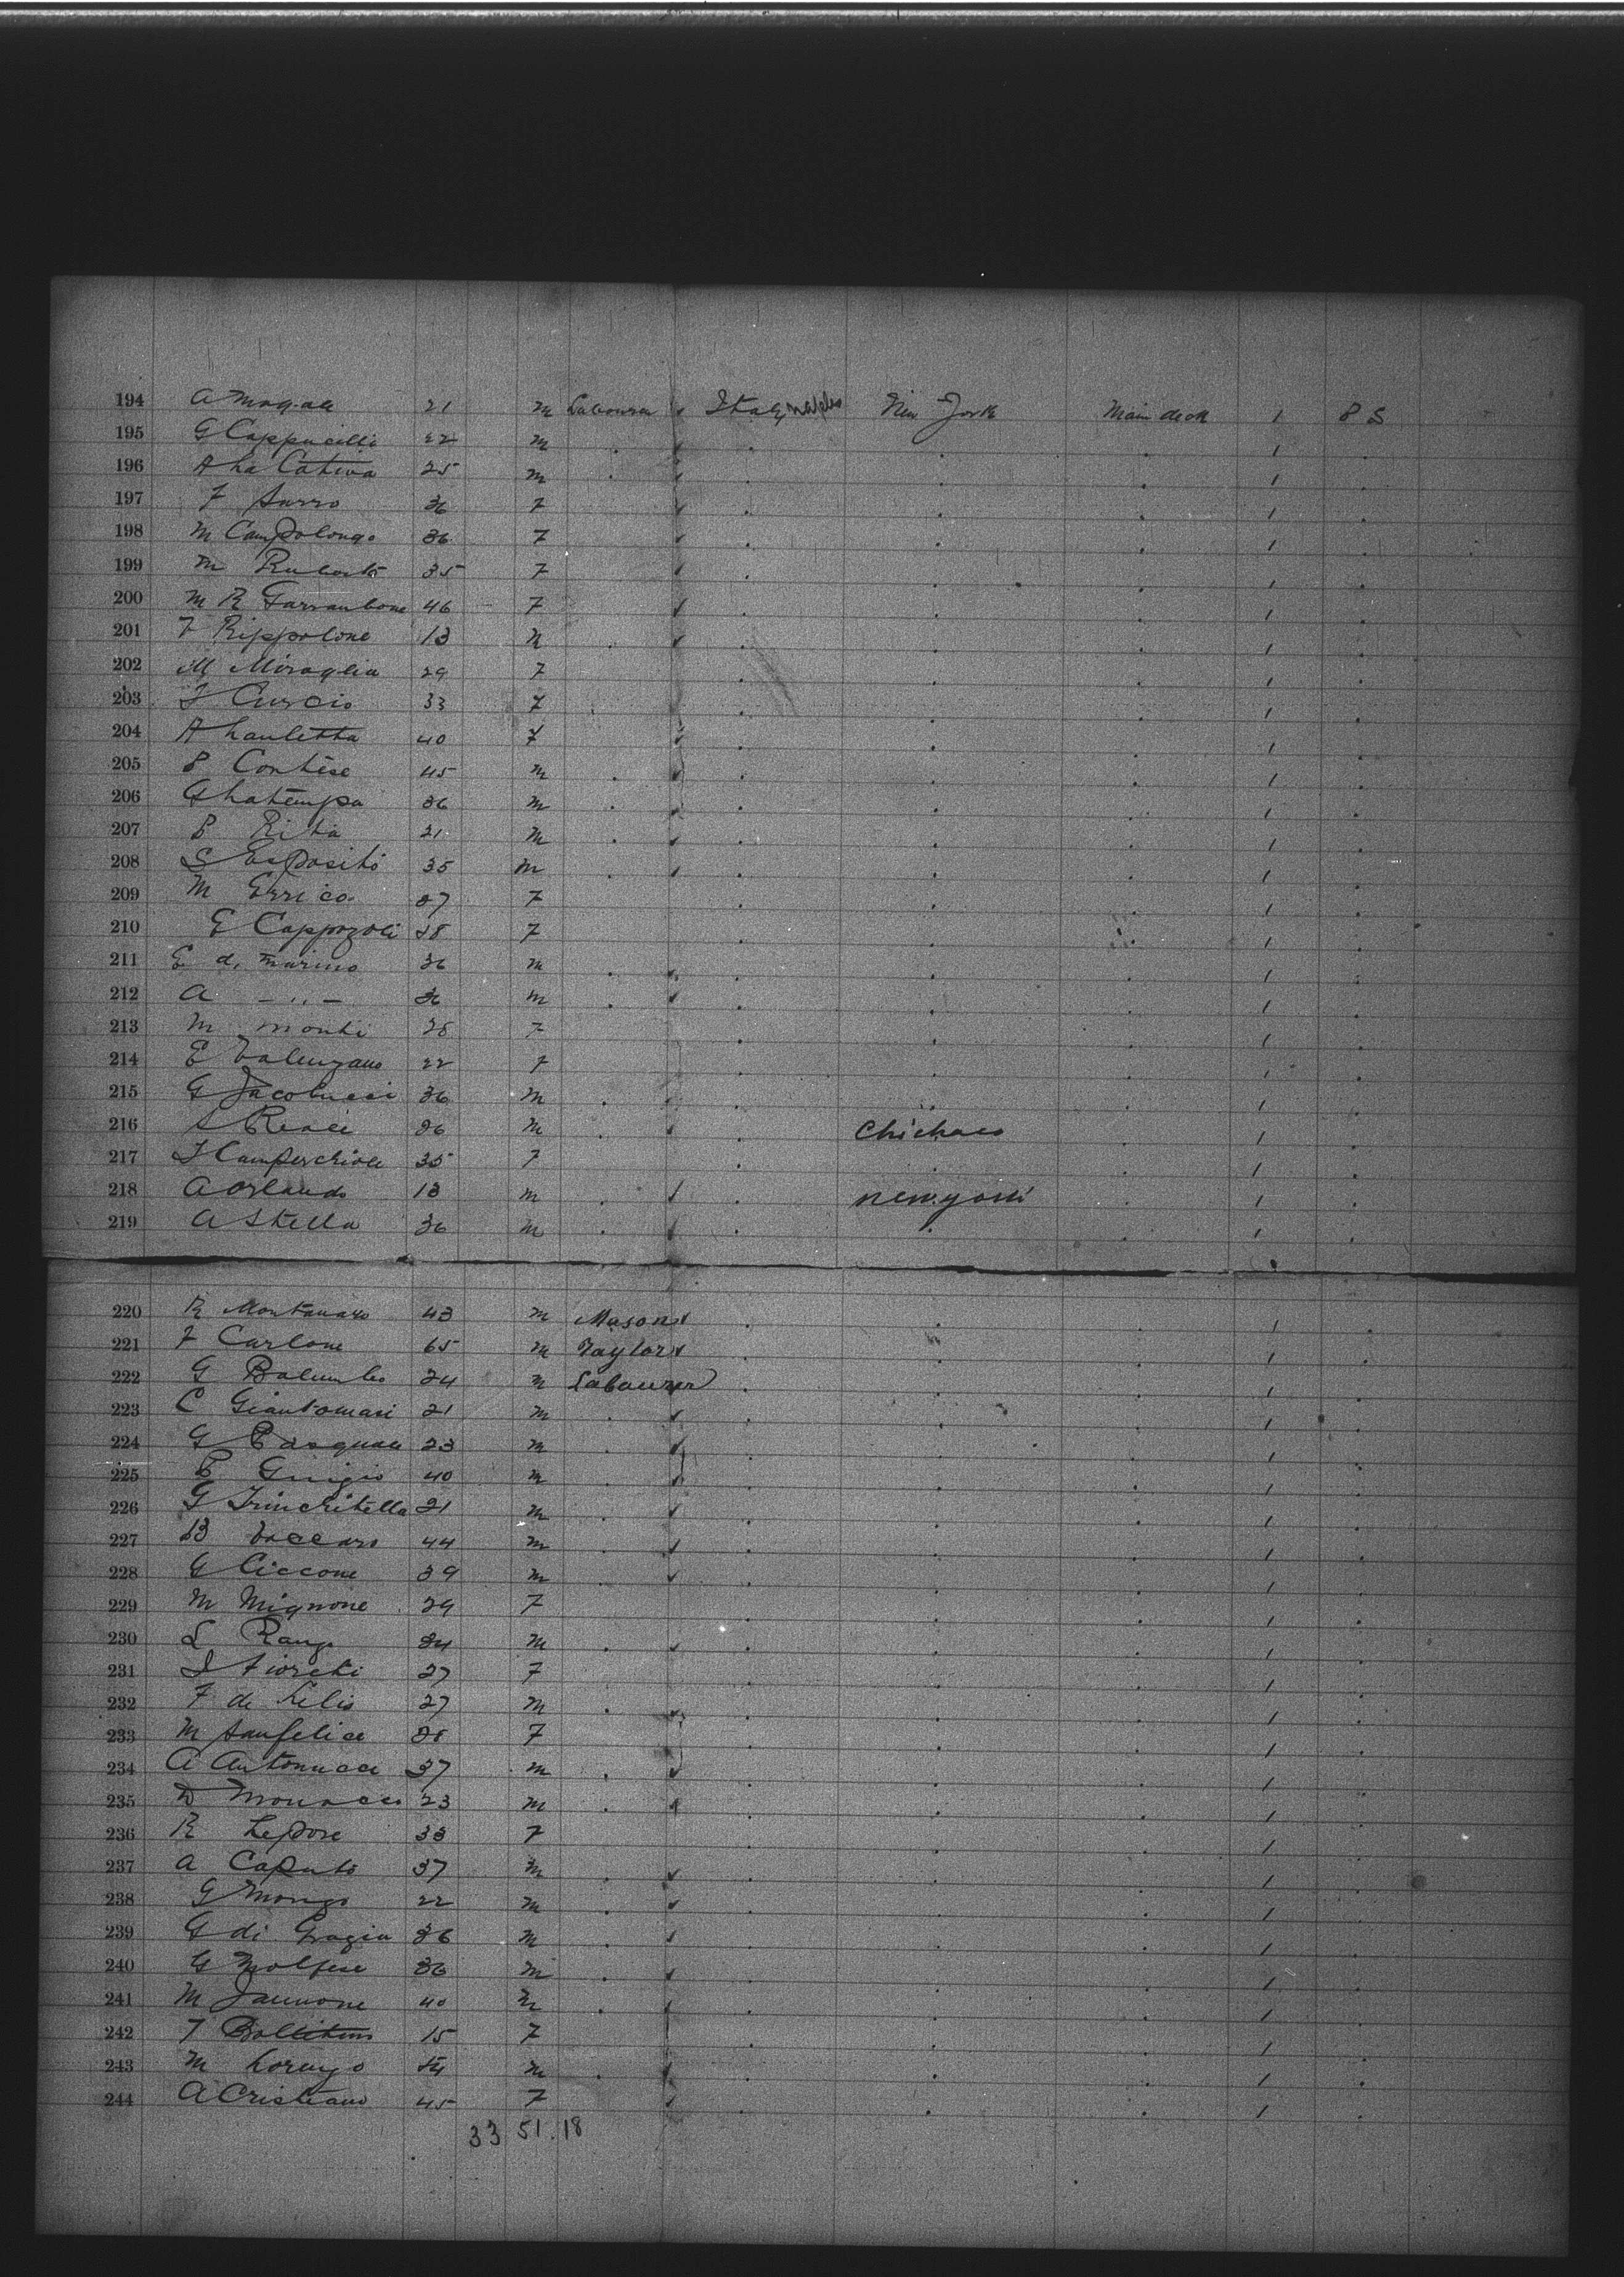 194 A 21 m Labourer Italy Naples New York Main deck 1 P S
195 G Cappucilli 22 m . . . . 1 .
196 A La Cativa 25 m . . . . 1 .
197 F Sarro 36 F . . . 1 .
198 M Campolongo 36 F . . . 1 .
199 M Ruberto 35 F . . . 1 .
200 M R 46 F . . . 1 .
201 F Rippolone 13 m . . . . 1 .
202 M Miraglia 29 F . . . 1 .
203 Curcio 33 F . . . 1 .
204 A Lauletta 40 F . . . 1 .
205 P Contese 45 m . . . . 1 .
206 G Latempa 36 m . . . . 1 .
207 P Rita 21 m . . . . 1 .
208 S Esposito 35 m . . . . 1 .
209 M Errico 27 F . . . 1 .
210 E Cappozoli 28 F . . . 1 .
211 E d. Marino 36 m . . . . 1 .
212 A - " - 36 m . . . . 1 .
213 M Monti 28 F . . . 1 .
214 E Valenzano 22 F . . . 1 .
215 G Jacobucci 36 m . . . . 1 .
216 26 m . . Chichaco . 1 .
217 35 F . . . 1 .
218 A Orlando 13 m . . New york . 1 .
219 A Stella 36 m . . . . 1 .
220 R Montanaro 43 m Mason . . . 1 .
221 F Carlone 65 m Taylor . . . 1 .
222 G Balumbo 24 m Labourer . . . 1 .
223 C Giantomasi 21 m . . . . 1 .
224 G Pasquale 23 m . . . . 1 .
225 40 m . . . . 1 .
226 G Trinchitella 21 m . . . . 1 .
227 B Vaccaro 44 m . . . . 1 .
228 G Ciccone 39 m . . . . 1 .
229 M Mignone 29 F . . . 1 .
230 L 24 m . . . . 1 .
231 27 F . . . 1 .
232 F de Lelis 27 m . . . . 1 .
233 M Sanfelice 28 F . . . 1 .
234 A Antonucci 37 m . . . . 1 .
235 D Monaco 23 m . . . . 1 .
236 R Lepore 33 F . . . 1 .
237 A Caputo 37 m . . . . 1 .
238 G 22 m . . . . 1 .
239 G di Grazia 36 m . . . . 1 .
240 G Molfese 36 m . . . . 1 .
241 M Iannone 40 m . . . . 1 .
242 15 F . . . 1 .
243 M m . . . . 1 .
244 A Cristiano 45 F . . . 1 .
33 51. 18